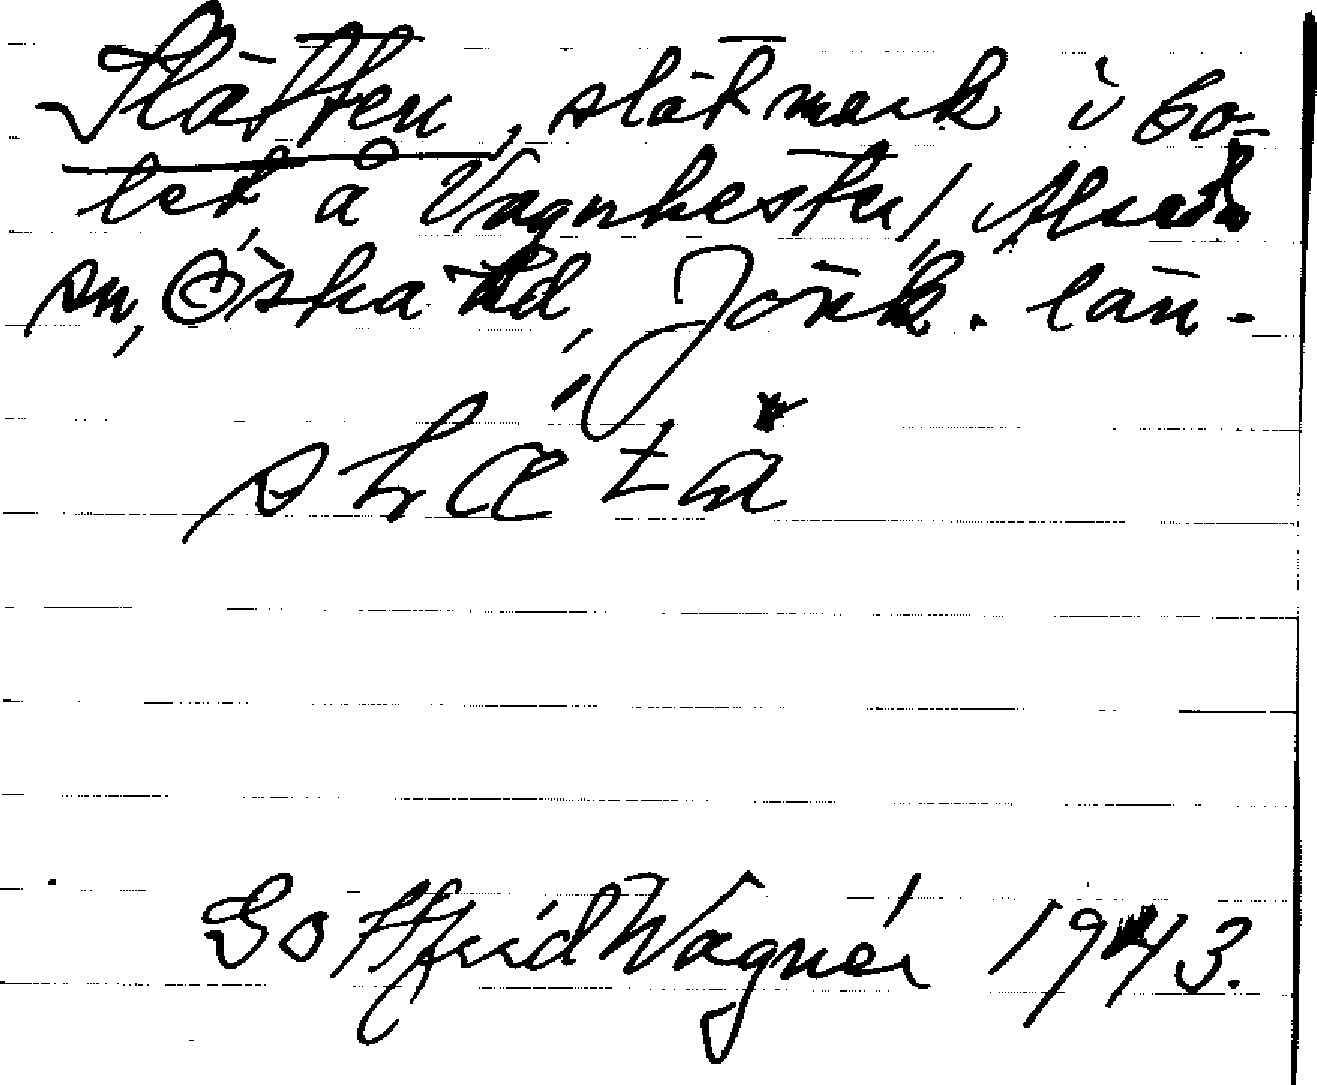 Slätten, slåtmark i bo-
let å Vagnhester, Alseda
sn, Östra hd, Jönk. län.
Gottfrid Wagnér 1943.